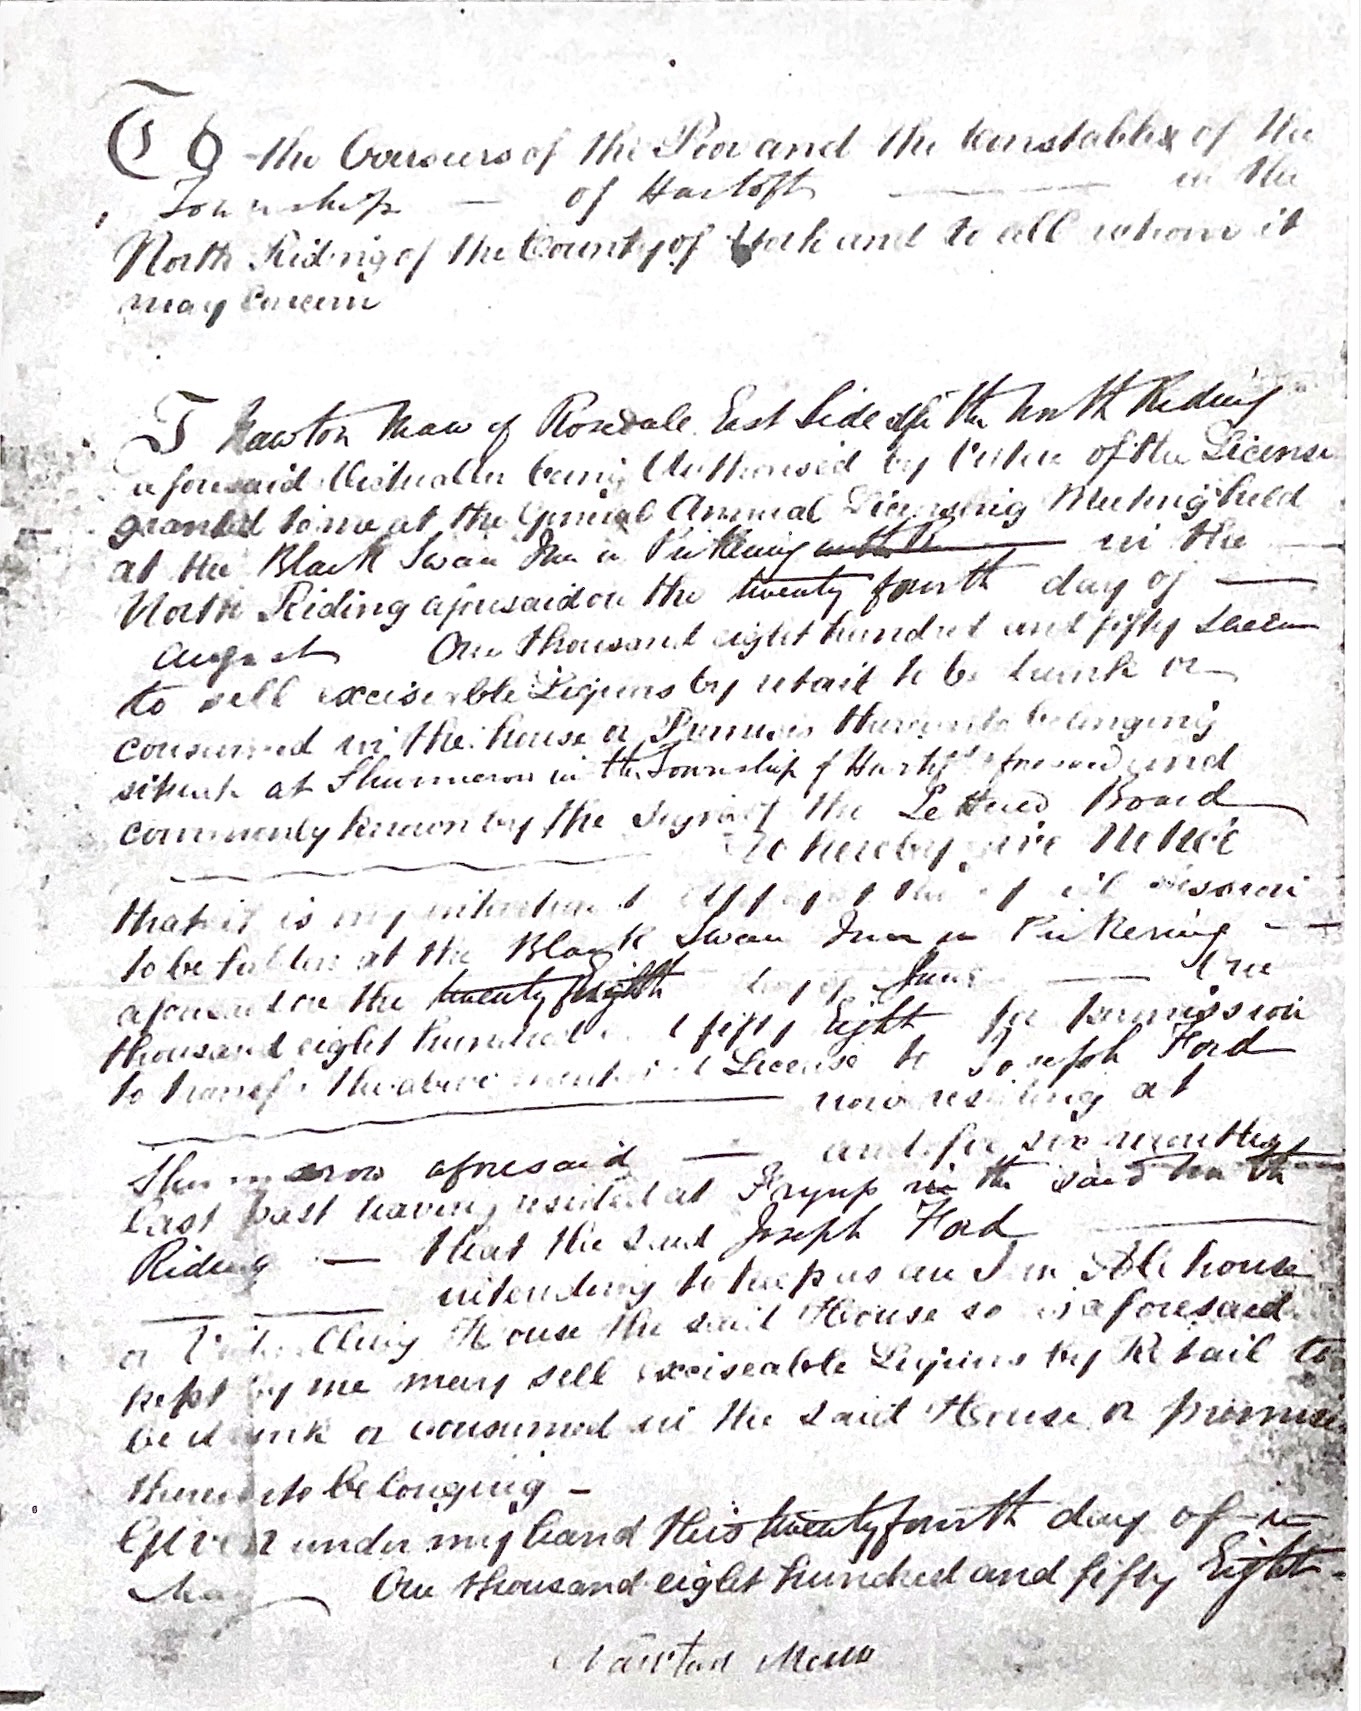 To the Overseers of the Poor and the Constables of the
Township of Hartoft in the
North Riding of the County of York and to all whom it
may Concern
I Nawton Maw of Rosedale East Side in the North Riding
aforesaid Victualler being Authorised by Virtue of the License
granted to me at the General Annual Licensing Meeting held
at the Black Swan Inn in Pickering in the
North Riding aforesaid on the twenty fourth day of
August One thousand eight hundred and fifty seven
to sell exciseable Liquors by retail to be drunk or
consumed in the house or Premises thereunto belonging
situate at Shunnerow in the Township of Hartoft aforesaid and
commonly known by the Sign of the Lettered Board
Do hereby give Notice
that it is my intention to apply at the special session
to be holden at the Black Swan Inn in Pickering
aforesaid on the twenty Eighth day of June One
thousand eight hundred and fifty Eight for permission
to transfer the above mentioned License to Joseph Ford
now residing at
aforesaid and for six months
Last past having resided at Fryup in the said North
Riding that the said Joseph Ford
intending to keep as an Inn Ale house
or Victualling House the said House so as aforesaid
kept by me may sell exciseable Liquors by Retail to
be drunk or consumed in the said House or premises
thereunto belonging -
Given under my hand this twenty fourth day of
May One thousand eight hundred and fifty Eight -
Nawton Maw